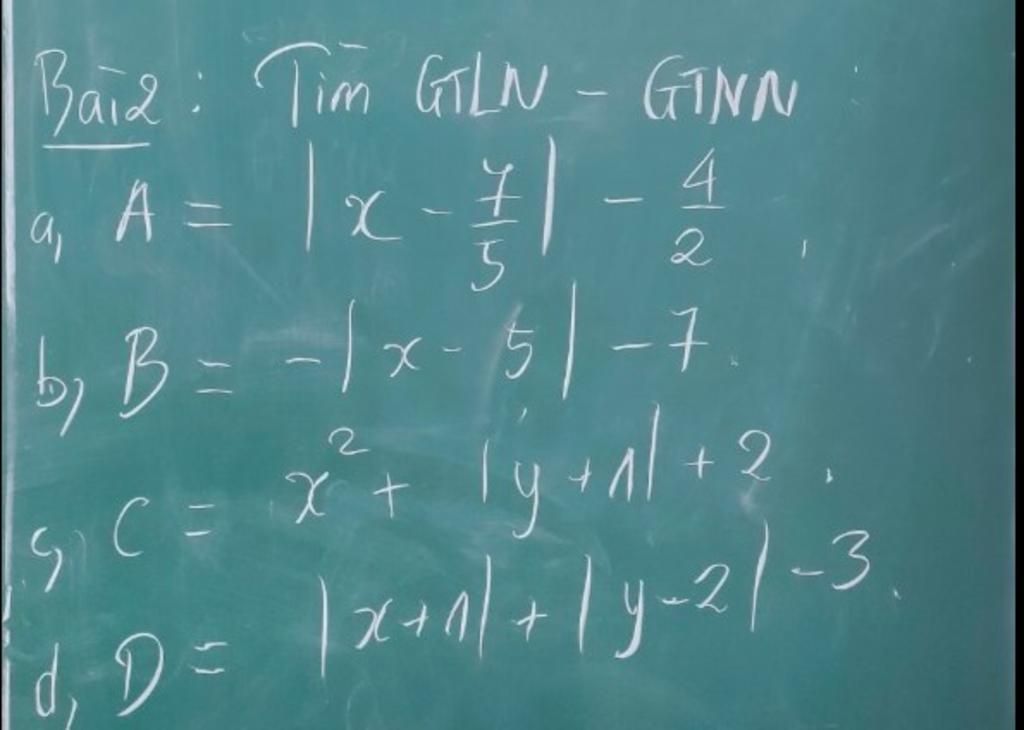 Bài 2 : Tìm GTLN - GTNN :
a, A = | x - 7/5 | - 4/2 ,
b, B = - | x - 5 | - 7 .
c, C = x² + | y + 1 | + 2 .
d, D = | x + 1 | + | y - 2 | - 3 .